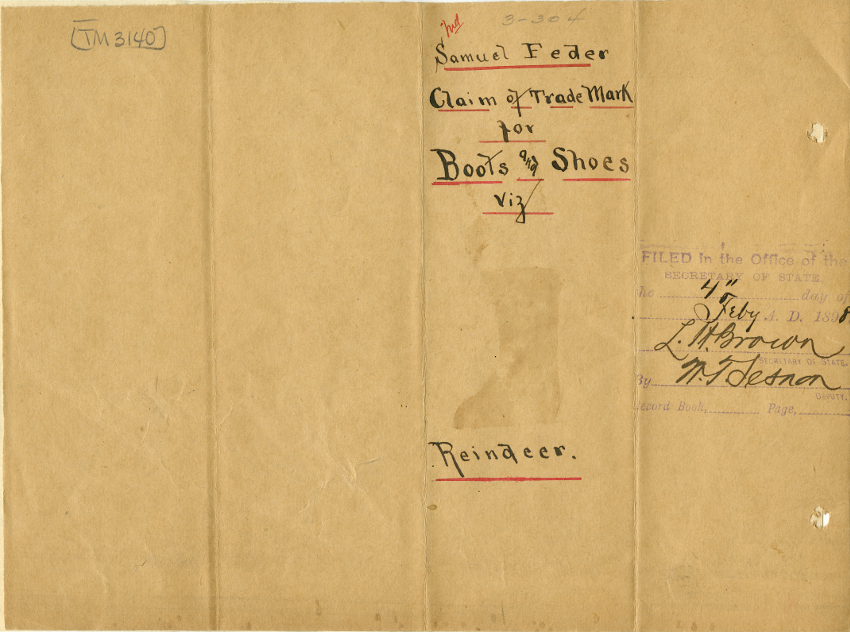 [TM 3140]
Ind
3-304
Samuel Feder
Claim of Trade Mark
for
Boots and Shoes
viz
Reindeer.
FILED in the Office of the
SECRETARY OF STATE.
the 4" day of
Feby A. D. 1898
L. H. Brown
SECRETARY OF STATE.
By W. T. Sesnon
DEPUTY.
Record Book, Page,